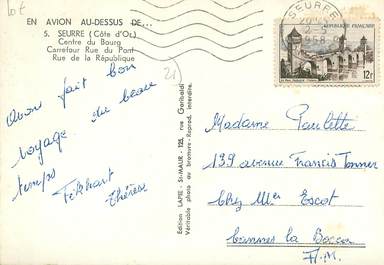 lot
EN AVION AU-DESSUS DE...
5. SEURRE (Côte d'Or)
Centre du Bourg
Carrefour Rue du Pont
Rue de la République
21)
Avons fait bon
voyage. du beau
temps
Thérèse
Edition LAPIE - St-MAUR - 125, rue Garibaldi
Véritable photo au bromure - Reprod. interdite.
SEURRE
1956
REPUBLIQUE FRANÇAISE
12f
Madame Paulette
139 avenue Francis Tonner
Chez Mer Escot
Cannes la Bocca
A.M.